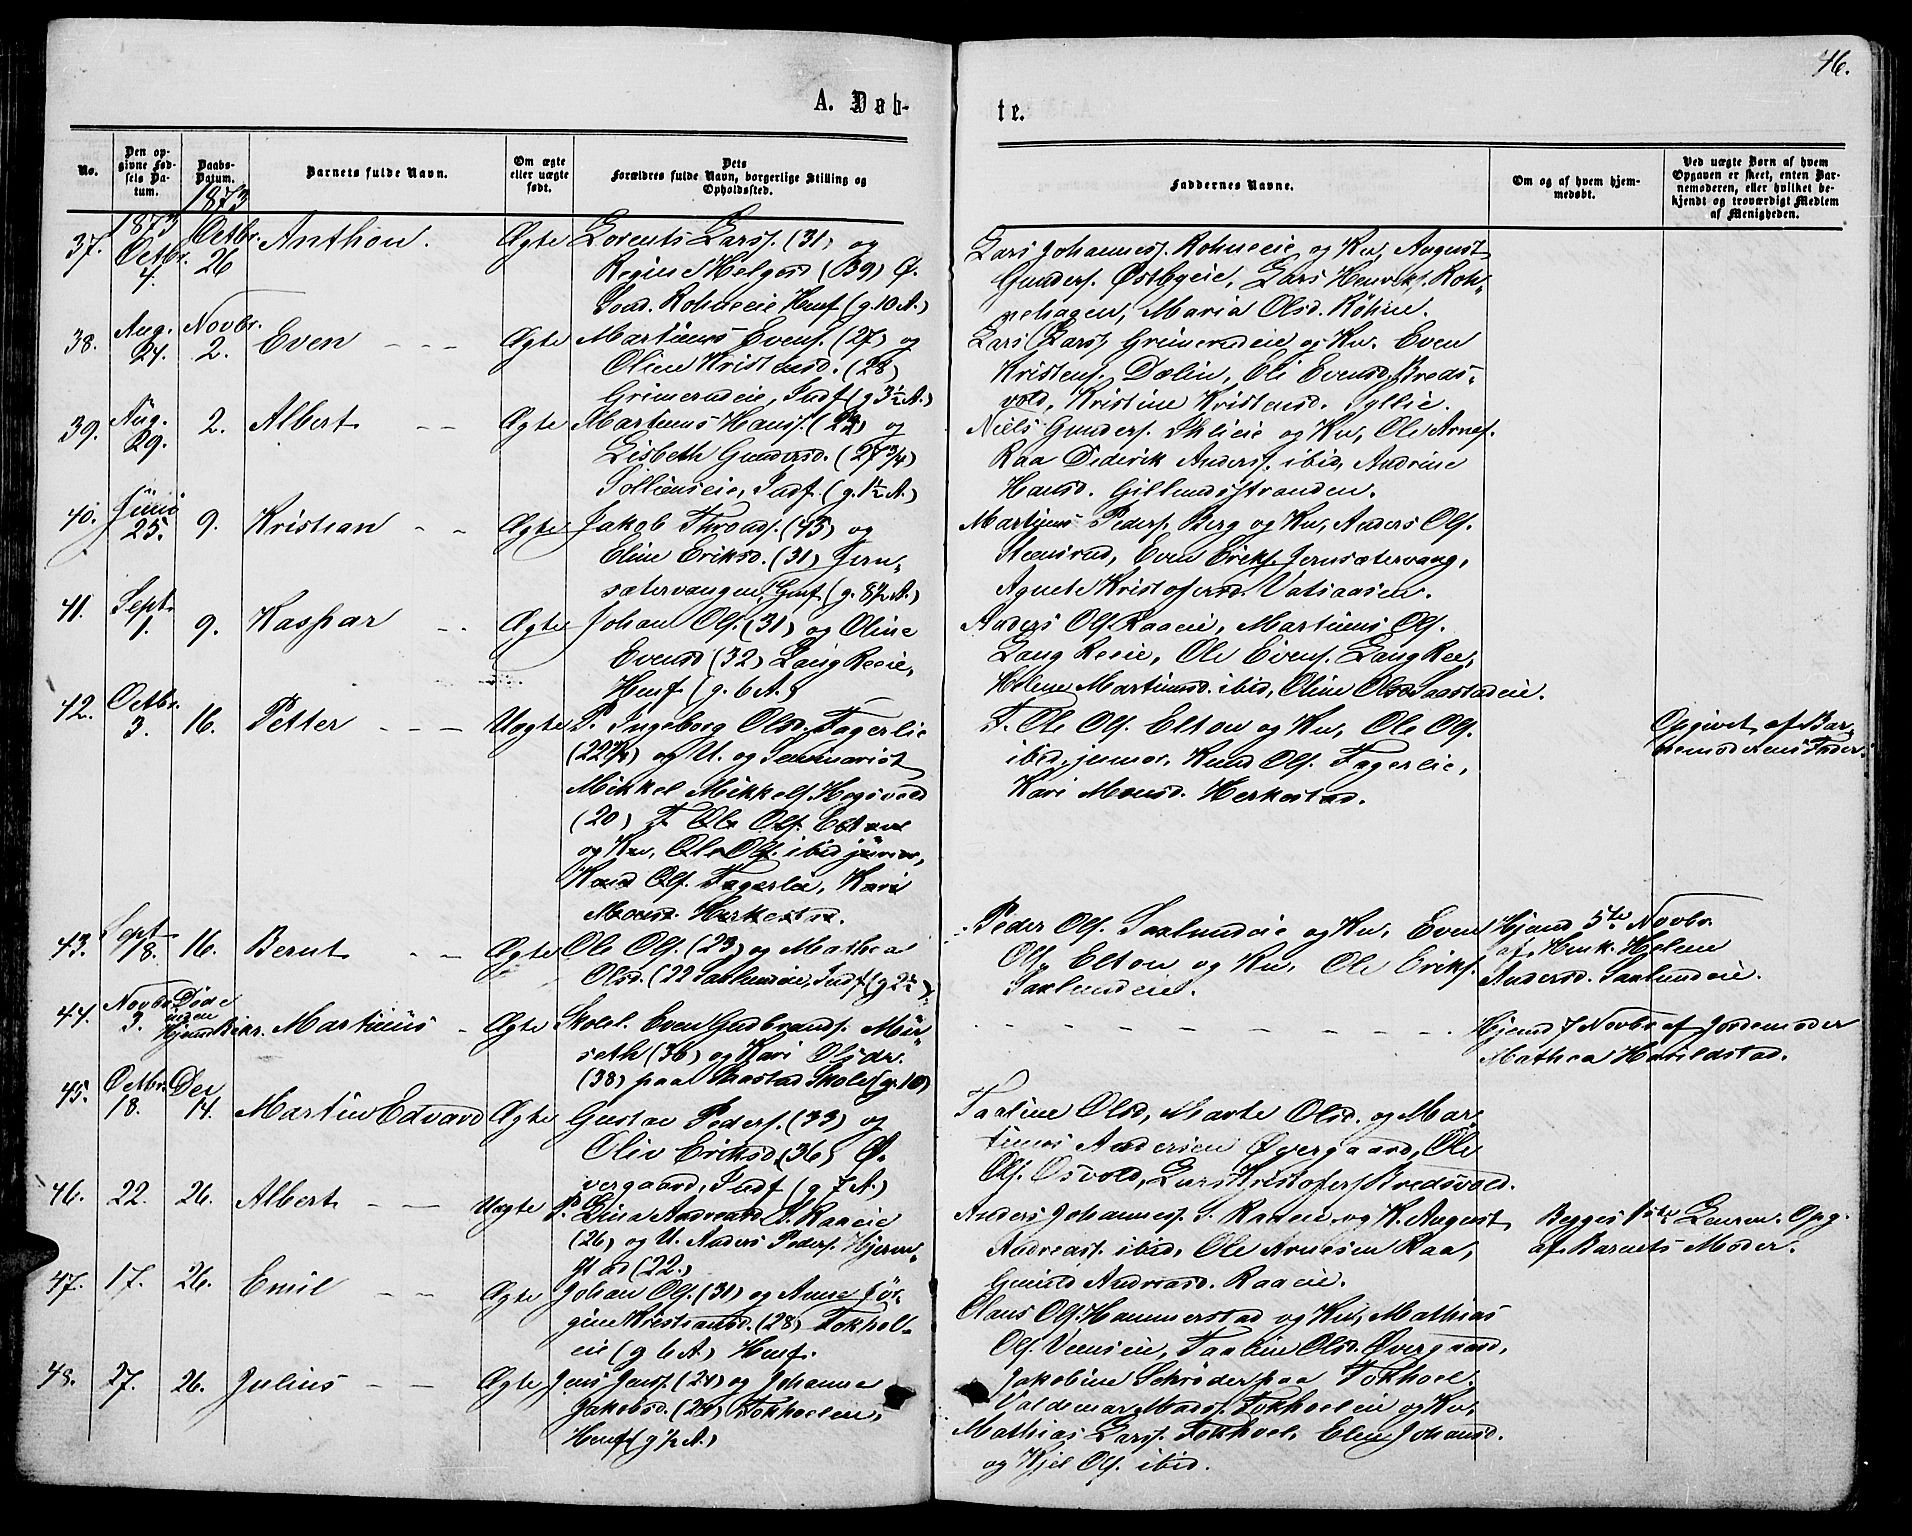 46.
A. Døb-
te.
No.
Den op-
givne Fød-
sels Da-
tum.
Daabs-
Datum.
1873
Barnets fulde Navn.
Om ægte
eller uægte
født.
Dets
Forældres fulde Navn, borgerlige Stilling og
Opholdssted.
Faddernes Navne.
Om og af hvem hjem-
medøbt.
Ved uægte Børn af hvem
Opgaven er skeet, enten Bar-
nemoderen, eller hvilket be-
kjendt og troværdigt Medlem
af Menigheden.
37.
1873
Octbr.
4.
Octbr.
26
Anthon.
Ægte
Lorents Larss. (31) og
Regine Helgesd (39) Ø.
Rohneeie Husf (g. 10 A.)
Lars Johanness. Rohneeie og Kv, August
Gunders. Østbyeie, Lars Henriks. Roh-
nehagen, Maria Olsd. Røhne.
38.
Aug.
24.
Novbr.
2.
Even
Ægte
Martinus Evens. (27) og
Oline Kristensd. (28)
Grimerudeie, Indf (g 3½ A.)
Lars Larss. Grimerudeie og Kv. Even
Kristens. Dælin, Eli Evensd. Breds-
vold, Kristine Kristensd.
39.
Aug.
29.
2.
Albert
Ægte
Martinus Hanss. og
Lisbeth Gundersd. (27 3/4)
Indf. (g. 1½ A.)
Niels Gunders. og Kv, Ole Arnes.
Raa Dederik Anderss. ibid, Andrine
Hansd. Gillundstranden.
40.
Juni
25.
9.
Kristian
Ægte
Jakob Thronds. (45) og
Eline Eriksd. (31) Jern-
sætervangen, Husf (g. 8½ A.)
Martinus Peders. Berg og Kv, Anders Ols.
Stensrud, Even Eriks. Jernsætervang,
Agnete Kristofersd. Vatsaasen.
41.
Sept.
1.
9.
Kaspar
Ægte
Johan Ols. (31) og Oline
Evensd (32) Langkeeie,
Husf (g. 6 A.)
Anders Ols. Raaeie, Martinus Ols.
Langkeeie, Ole Evens. Langkee,
Helene Martinusd. ibid, Oline Olsd. Saastadeie.
42.
Octbr.
3.
16.
Petter
Uægte
P. Ingeborg Olsd. Fagerlie
(22½) og U. og Seminarist
Mikkel Mikkels. Hogsvold
(20) F. Ole Ols. Elton
og Kv, Ole Ols. ibid junior,
Knud Ols. Fagerlie, Kari
Monsd. Herkestad.
F. Ole Ols. Elton og Kv, Ole Ols.
ibid, junior, Knud Ols. Fagerlie,
Kari Monsd. Herkestad.
Opgivet af Bar-
nemoderens Fader.
43.
Sept.
8.
16.
Bernt
Ægte
Ole Ols. (23) og Mathea
Olsd. (22 Saxlundeie, Indf (g 2½)
Peder Ols. Saxlundeie og Kv, Even
Ols. Elton og Kv, Ole Eriks.
Saxlundeie.
Hjemd 5te Novbr.
af Husk. Helene
Andersd. Saxlundeie.
44.
Novbr.
3.
Døde
inden
Kirk.
Martinus
Ægte
Skolel. Even Gudbrands. Mür-
seth (36) og Kari Olsdr.
(38) paa Saastad Skole (g. 10)
Hjemd 7 Novbr af Jordemoder
Mathea Harildstad.
45.
Octbr.
18.
Dec
14.
Martin Edvard
Ægte
Gustav Peders. (33) og
Oliv Eriksd. (36) Ø-
vergaard, Indf (g 7 A.)
Taaline Olsd, Marte Olsd. og Mar-
tinus Andersen Øvergaard, Ole
Ols. Osvold, Lars Kristofers. Bredsvold.
46.
22.
26.
Albert
Uægte
P. Lina Andreasd. S. Raaeie
(26) og U. Anders Peders. Hjerm-
stad (22.)
Anders Johanness. S. Raaeie og K. August
Andreass. ibid, Ole Arnesen Raa,
Gunild Andreasd. Raaeie.
Begges 1ste Leierm. Opg.
af Barnets Moder.
47.
17.
26.
Emil
Ægte
Johan Ols. (31) og Anne Jør-
gine Kristiansd. (28) Fokhol-
eie (g 6 A.) Husf.
Claus Ols. Hammerstad og Kv, Mathias
Ols. Veenseie, Taaline Olsd. Øvergaard,
Jakobine Schrøder paa Fokhoel.
48.
27.
26.
Julius
Ægte
Jens Jenss. (21) og Johanne
Jakobsd. (24) Fokhoeleie,
Husf (g ½ A.)
Valdemar Madss. Fokhoeleie og Kv,
Mathias Larss. Fokhoel, Elen Johansd.
og Kjel Ols. ibid.